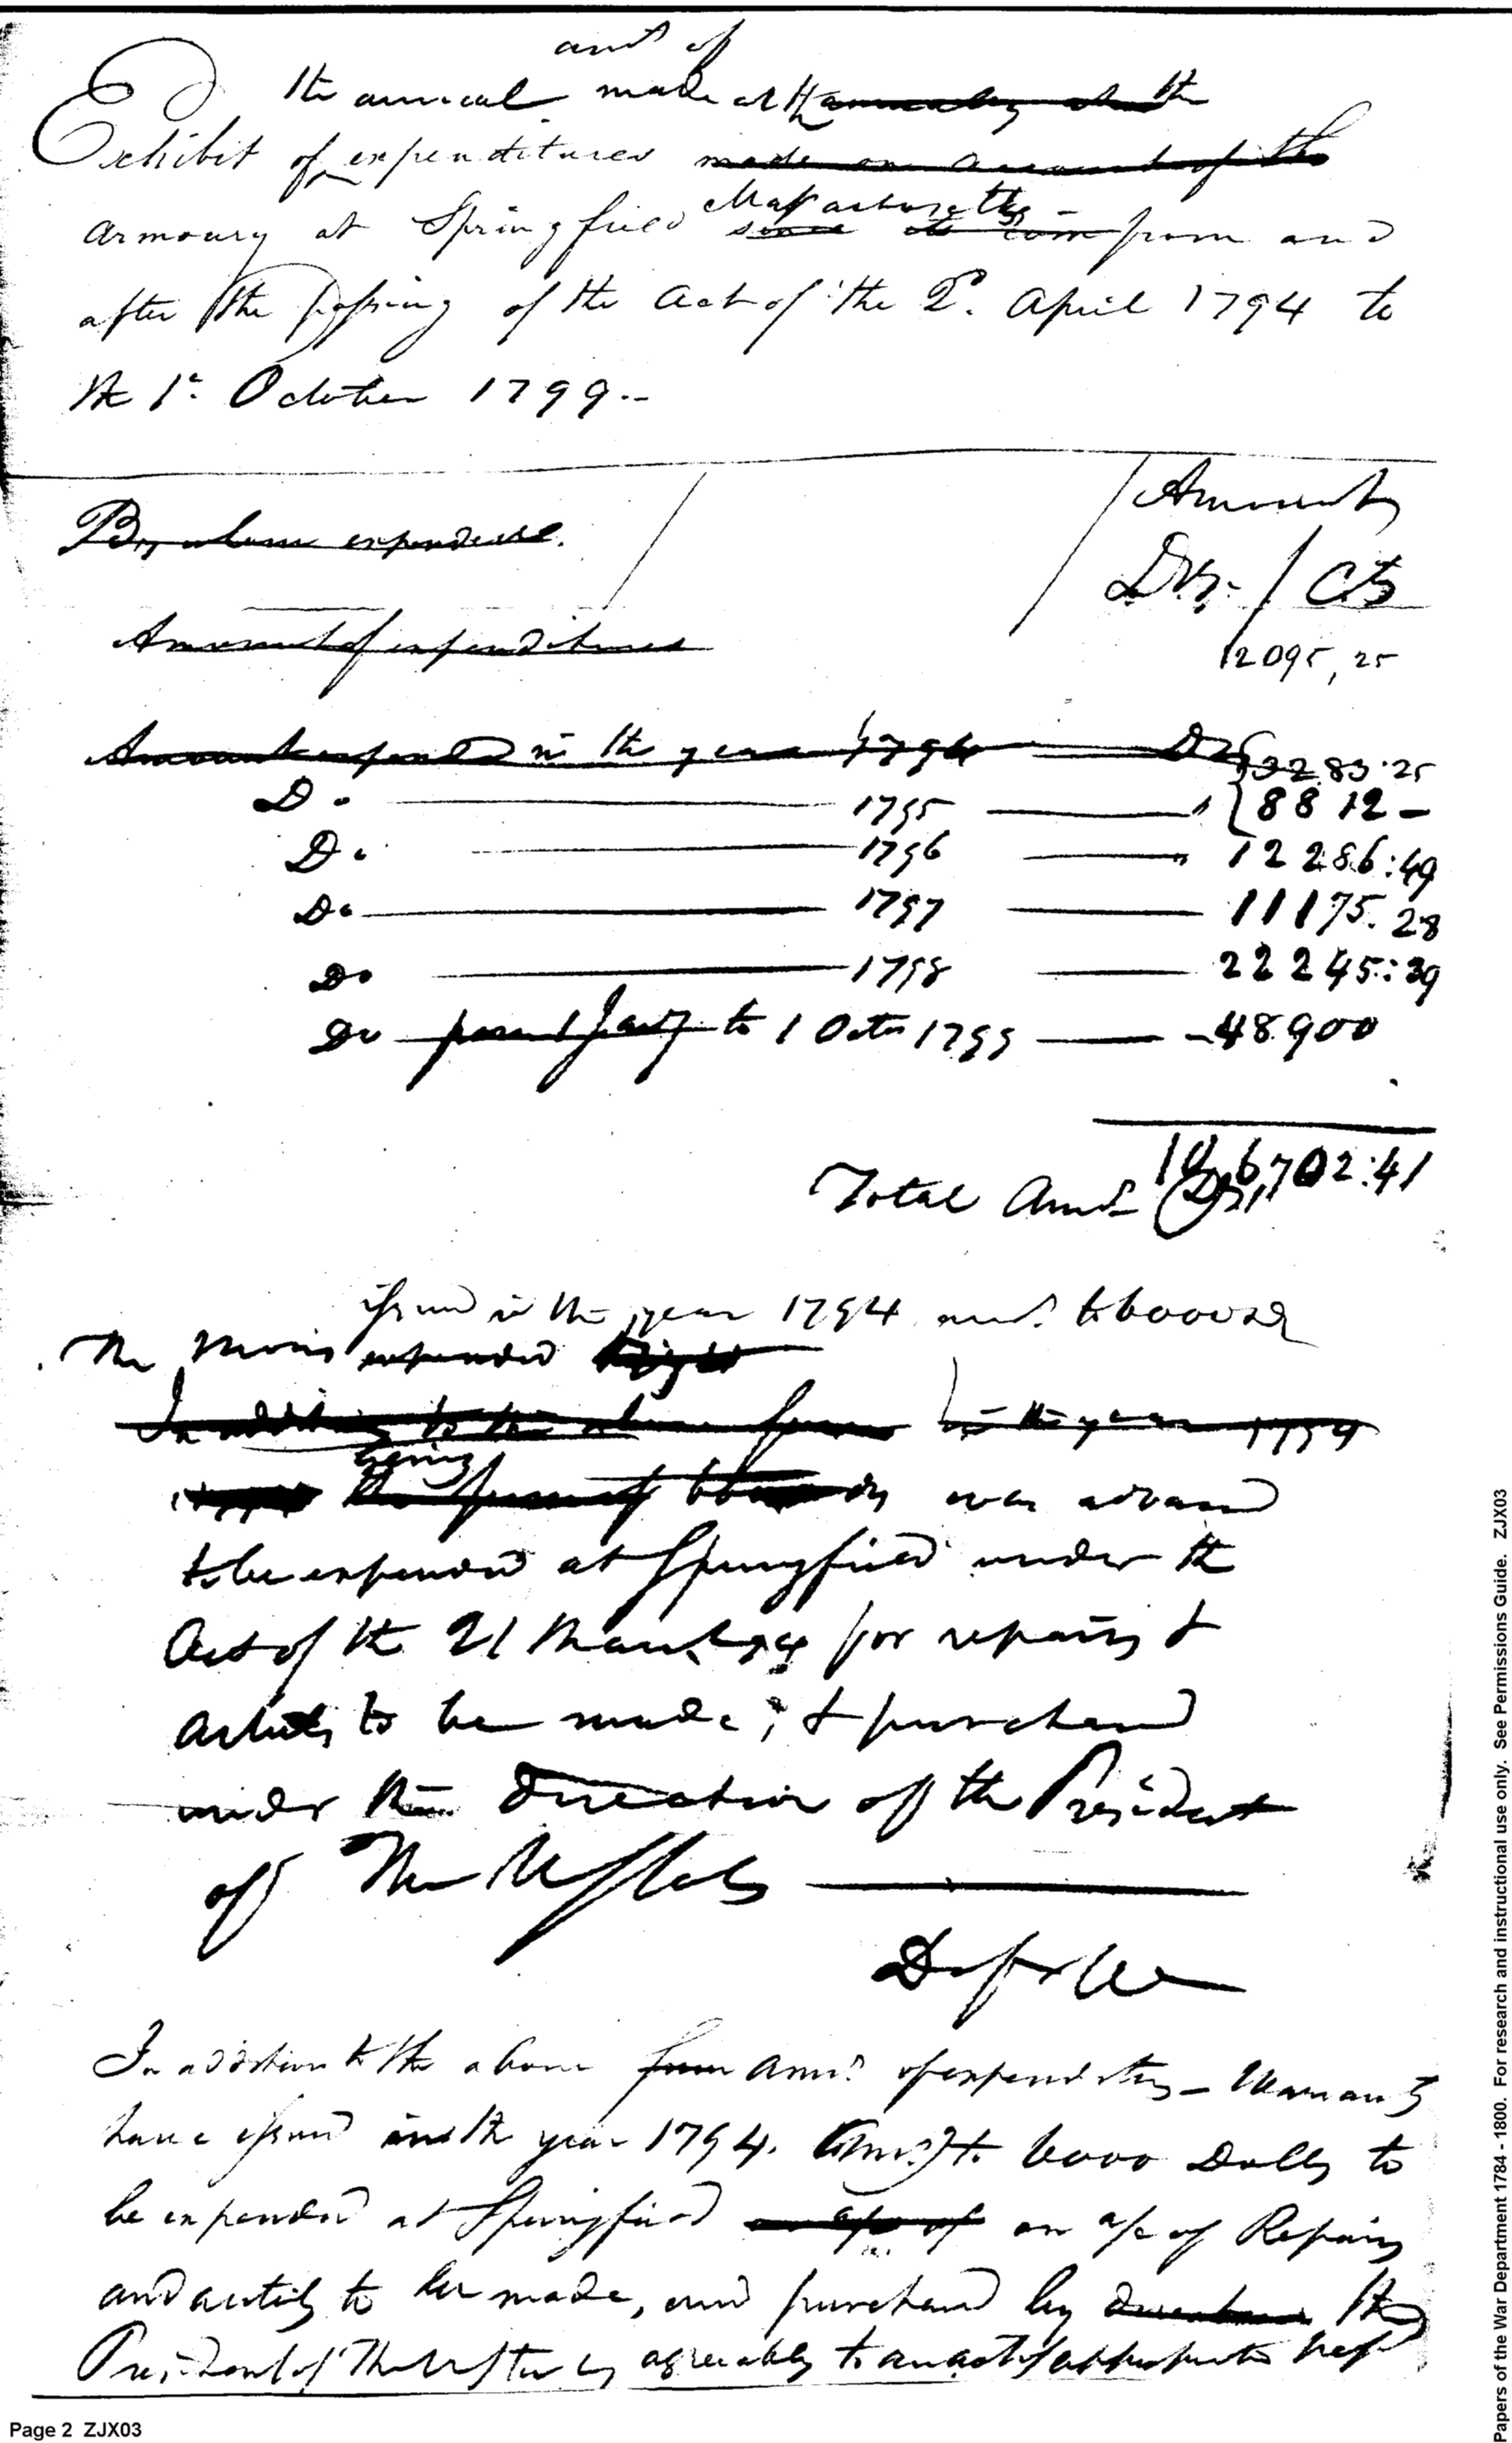 amt of
the annual made at the
Exhibit of expenditures made on account of the
Massachusetts
armoury at Springfield since its com from and
after the passing of the Act of the 2d. April 1794 to
the 1st. October 1799.
Amount
By whom expended.
Drs. / Cts
Amount of expenditures
12095,25
Amount expended in the year 1794 3283.25
Do. 1795 8812 -
Do. 1796 " 12286:49
Do 1797 11175.28
Do 1798 22245:39
Do from 1 Jany. to 1 Octr 1799 - 48900
106702:41
Total Amt. Drs
issued in the year 1794 amt. to 6000 Ds
The Monies expended
In addition to the above sum in the year 1794
being
the sum of 6000 was advanced
to be expended at Springfield under the
Act of the 21 March 94 for repairs &
articles to be made, & purchased
under the direction of the President
of the U States
D of War
In addition to the above sum amt. of expenditures - Warrants
have issued in the year 1794. Amt. to 6000 Dolls to
be expended at Springfield on a/c of on a/c of Repairs
and articles to be made, and purchased by direction the
President of the U States agreeably to an act of appropriation
Page 2 ZJX03
Papers of the War Department 1784 - 1800. For research and instructional use only. See Permissions Guide. ZJX03